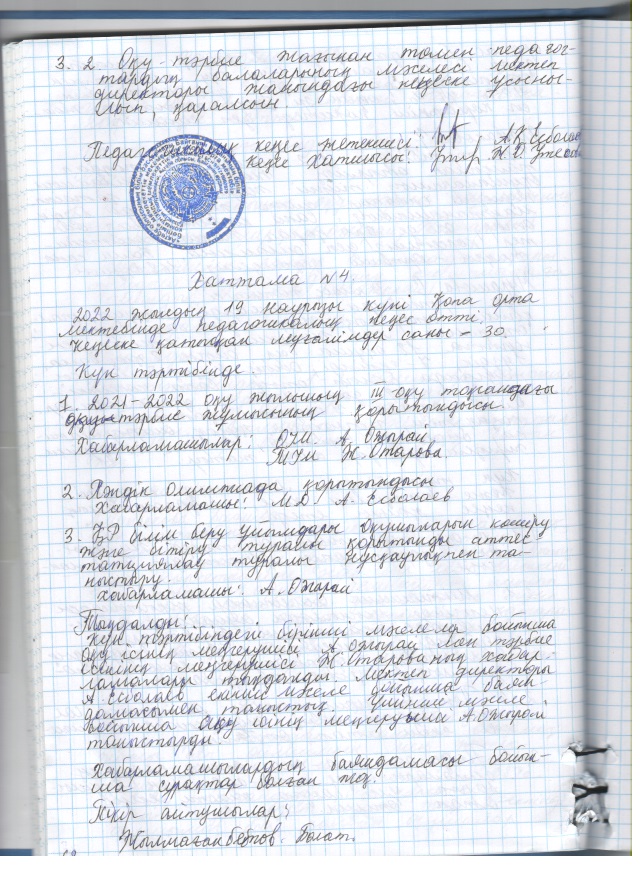 3. 2. Оқу-тәрбие жағынан төмен педагог-
тардың балаларының мәселесі мектеп
директоры жанындағы кеңеске ұсыны-
лып, қаралсын.
Педагогикалық кеңес жетекшісі:
кеңес хатшысы:
Хаттама №4.
2022 жылдың 19 наурызы күні Қопа орта
мектебінде педагогикалық кеңес өтті.
Кеңеске қатысқан мұғалімдер саны – 30.
Күн тәртібінде.
1. 2021-2022 оқу жылының III-оқу тоқсандағы
тәрбие жұмысының қорытындысы.
Хабарламашылар: ОІМ. А. Ожырай
ТІМ Ж. Отарова
2. Пәндік олимпиада қорытындысы
Хабарламашы: МД А. Есболаев
3. ҚР білім беру ұйымдары оқушыларын көшіру
және бітіру туралы қорытынды аттес
татциялау туралы нұсқаулықпен та-
ныстыру.
Хабарламашы: А. Ожырай
Тыңдалды:
Күн тәртібіндегі бірінші мәселелер бойынша
оқу ісінің меңгерушісі А. Ожырай мен тәрбие
ісінің меңгерушісі Ж. Отарованың хабар-
ламалары тыңдалды. Мектеп директоры
А. Есболаев екінші мәселе бойынша баян
дамасымен таныстыд. Үшінші мәселе
бойынша оқу ісінің меңгерушісі А. Ожырай
таныстырды.
Хабарламашылардың баяндамасы бойын-
ша сұрақтар болған жоқ.
Пікір айтушылар:
Жылмағанбетов. Болат.